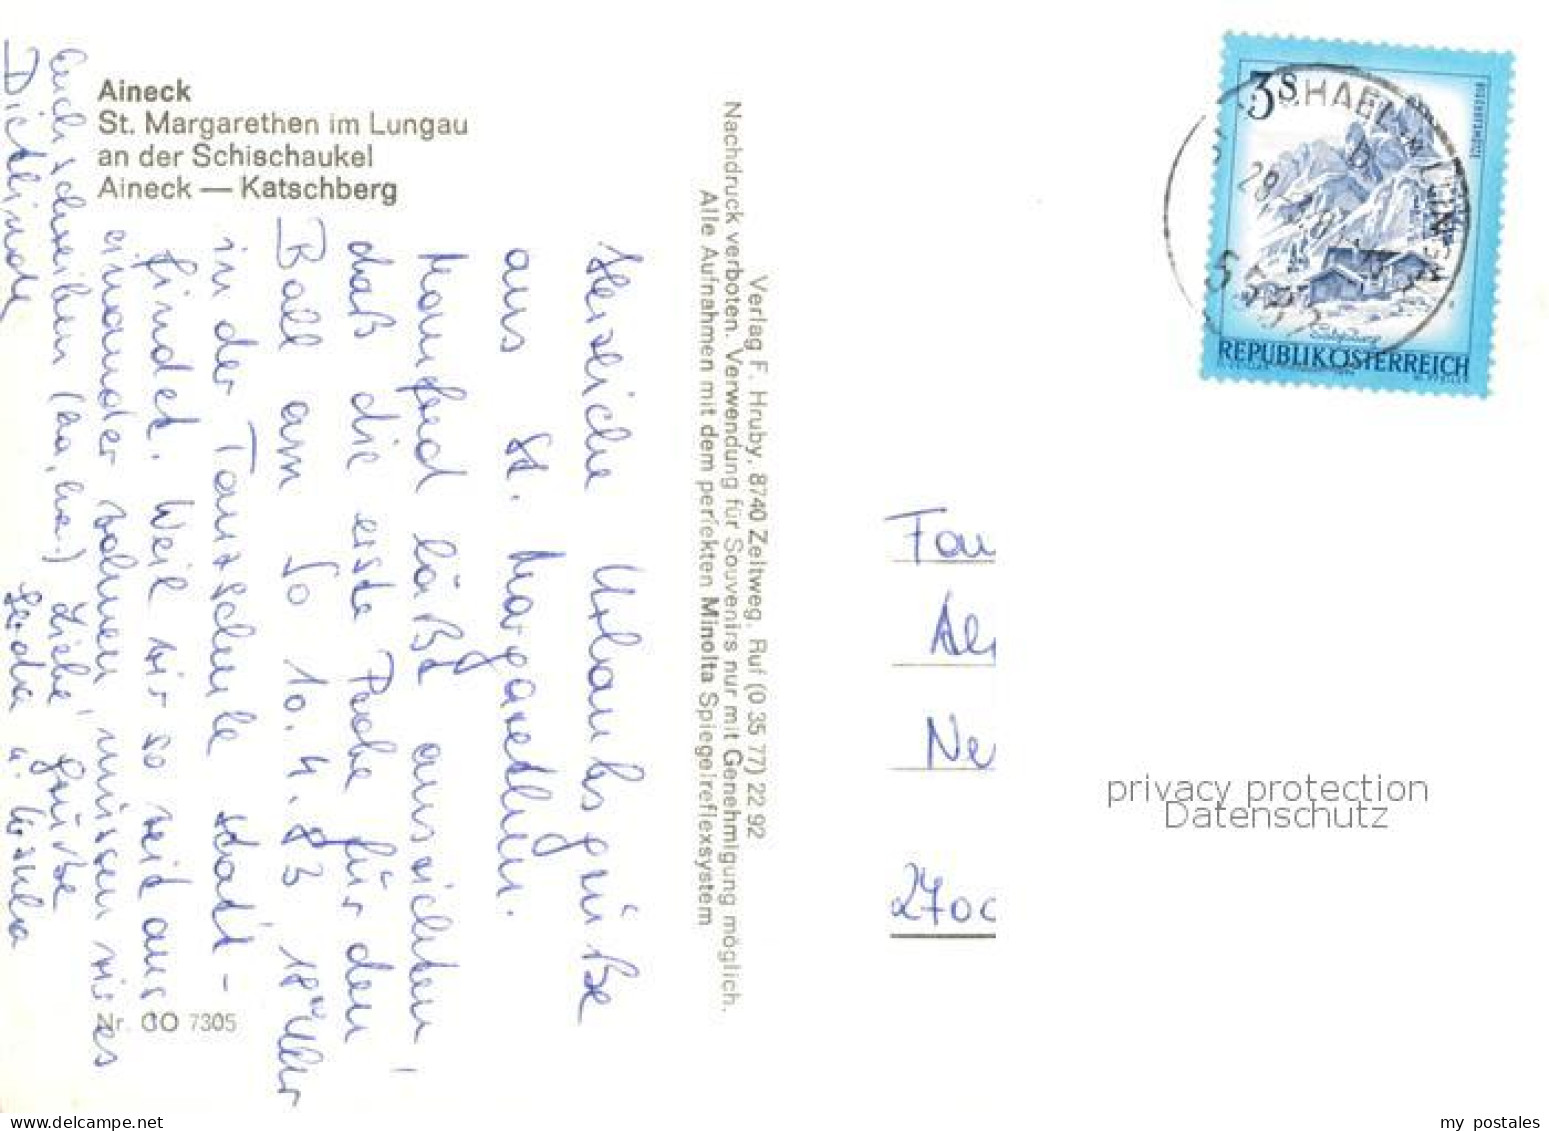 Aineck
St. Margarethen im Lungau
an der Schischaukel
Aineck — Katschberg
Herzliche Urlaubsgrüße
aus St. Margarethen.
Manfred läßt ausrichten,
daß die erste Probe für den
Ball am So 10.4.83 18°° Uhr
in der Tanzschule statt-
findet. Weil wir so weit aus-
einander wohnen, müssen wir es
Euch schreiben (ha, ha.) Liebe Grüße
Dietlinde
Gerda u. Ursula
Nr. CO 7305
Verlag F. Hruby, 8740 Zeltweg, Ruf (0 35 77) 22 92
Nachdruck verboten. Verwendung für Souvenirs nur mit Genehmigung möglich.
Alle Aufnahmen mit dem perfekten Minolta Spiegelreflexsystem
3 S
Salzburg
REPUBLIK ÖSTERREICH
HAEL IM LUNGAU
b
Fa
Ne
270
privacy protection
Datenschutz
www.delcampe.net
my_postales